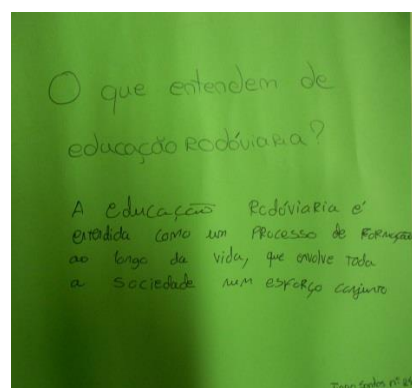 O que entendem de
educação Rodóviaria?
A educação Rodóviaria é
entedida como um processo de formação
ao longo da vida, que envolve toda
a sociedade num esforço conjunto
Santos nº